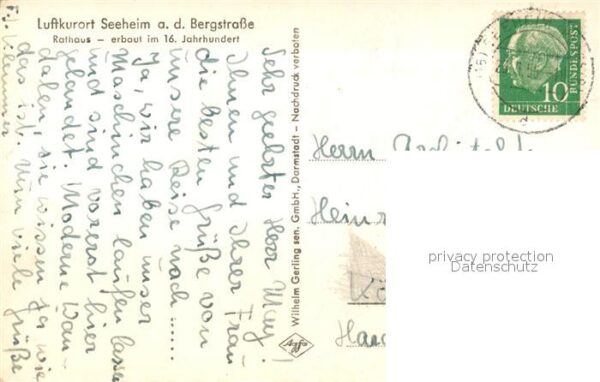 Luftkurort Seeheim a. d. Bergstraße
Rathaus – erbaut im 16. Jahrhundert
Sehr geehrter Herr May!
Ihnen und Ihrer Frau
die besten Grüße von
unsere Reise nach ......
Ja, wir haben unser
Maschinchen laufen lassen
und sind vorerst hier
gelandet. Moderne Van-
dalen, sie wissen ja wie
das ist. Nun viele Grüße
Wilhelm Gerling sen. GmbH., Darmstadt – Nachdruck verboten
Agfa
DEUTSCHE
BUNDESPOST
10
Herrn
Hein
Kö
privacy protection
Datenschutz